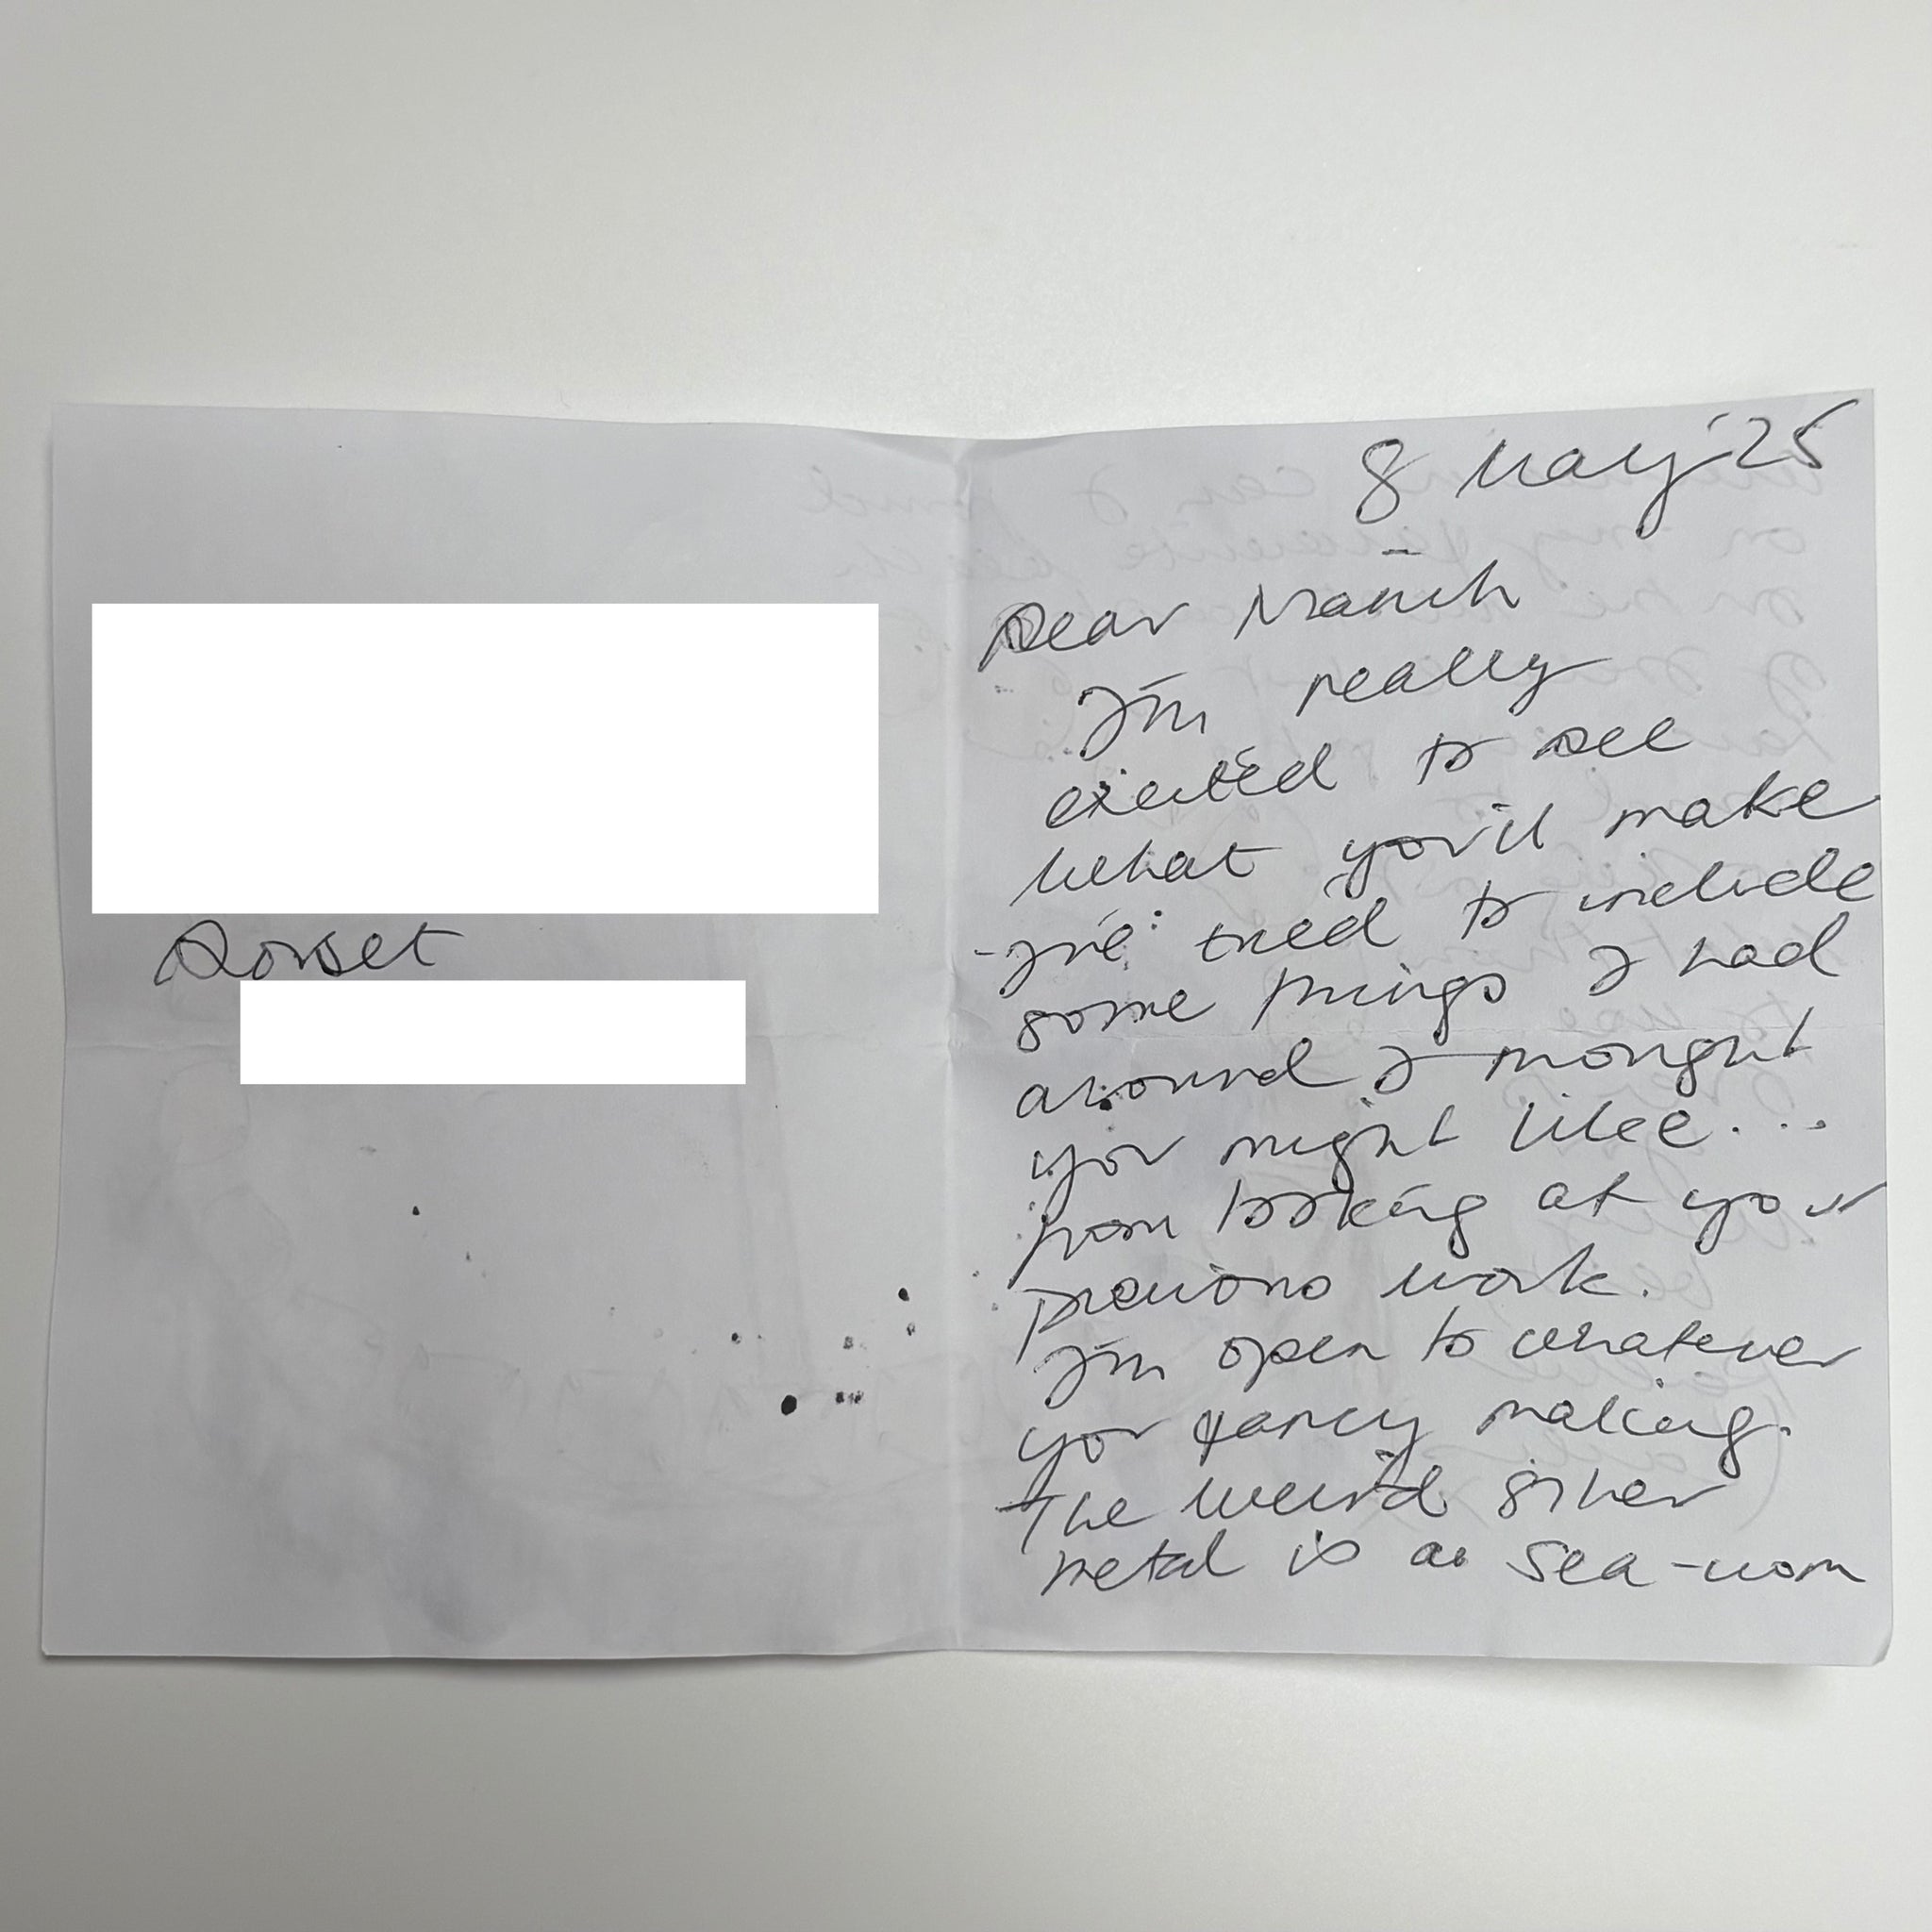 Dorset
8 May '25
Dear
I'm really
excited to see
what you'll make
- I've tried to include
some things I had
around I thought
you might like...
from looking at your
previous work.
I'm open to whatever
you fancy making.
The weird silver
metal is a sea-worn